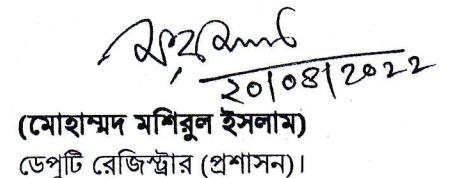 20/08/2022
(মোহাম্মদ মশিরুল ইসলাম)
ডেপুটি রেজিস্ট্রার (প্রশাসন)।